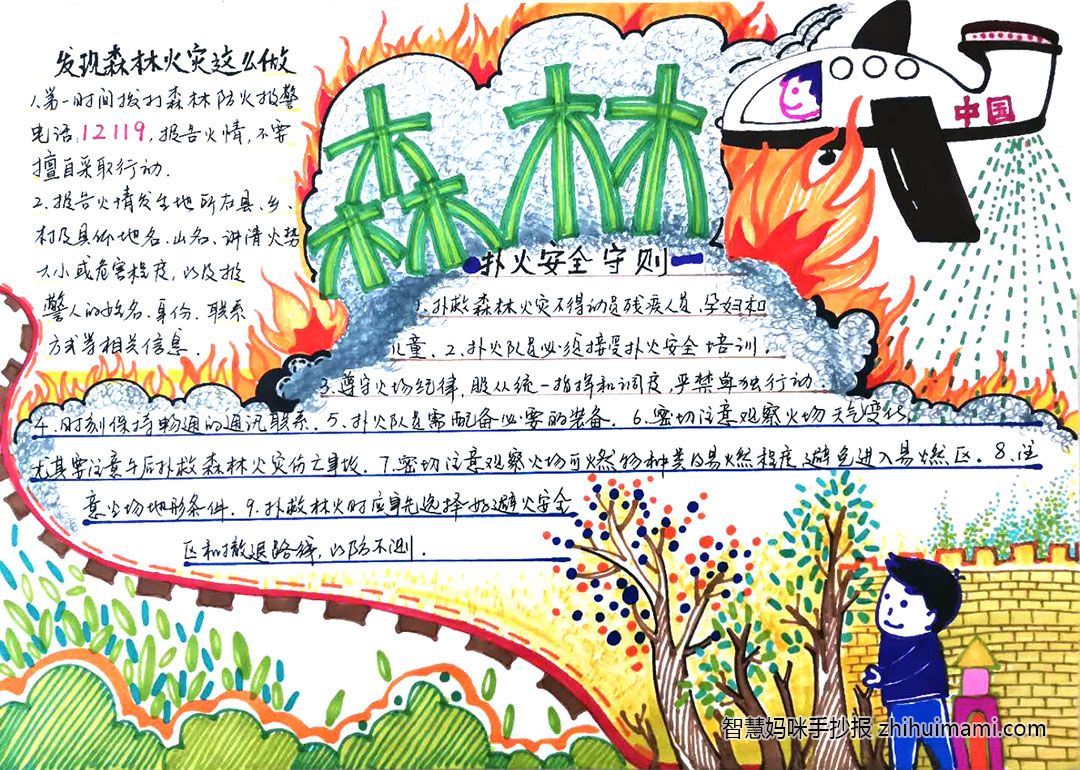 发现森林火灾这么做
1.第一时间拨打森林防火报警
电话:12119,报告火情,不要
擅自采取行动.
2.报告火情发生地所在县、乡、
村及具体地名、山名、讲清火势
大小或危害程度,以及报
警人的姓名、身份、联系
方式等相关信息.
森林
中国
扑火安全守则
1.扑救森林火灾不得动员残疾人员、孕妇和
儿童. 2.扑火队员必须接受扑火安全培训.
3.遵守火场纪律,服从统一指挥和调度,严禁单独行动.
4.时刻保持畅通的通讯联系. 5.扑火队员需配备必要的装备. 6.密切注意观察火场天气变化
尤其要注意午后扑救森林火灾伤亡事故. 7.密切注意观察火场可燃物种类及易燃程度,避免进入易燃区. 8.注
意火场地形条件. 9.扑救林火时应事先选择好避火安全
区和撤退路线,以防不测.
智慧妈咪手抄报 zhihuimami.com